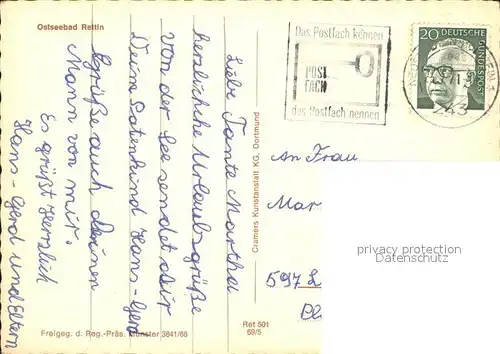 Ostseebad Rettin
Liebe Tante Martha
herzliche Urlaubsgrüße
von der See sendet dir
Dein Patenkind Hans-Gerd
Grüße auch deinen
Mann von mir.
Es grüßt Herzlich
Hans-Gerd und Eltern
Freigeg. d. Reg.-Präs. Münster 3841/68
Cramers Kunstanstalt KG, Dortmund
Ret 501
69/5
Das Postfach können
POST
FACH
das Postfach nennen
20
DEUTSCHE
BUNDESPOST
243
An Frau
Mar
597 L
Pl
privacy protection
www.oldthing.de